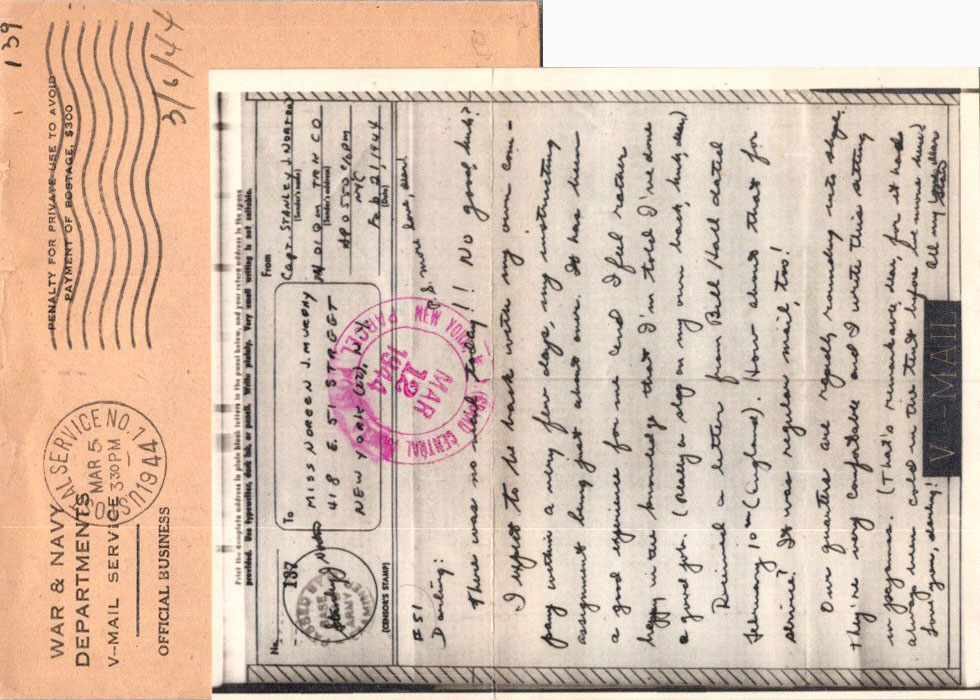 139
3/6/44
PENALTY FOR PRIVATE USE TO AVOID
PAYMENT OF POSTAGE, $300
WAR & NAVY
DEPARTMENTS
V-MAIL SERVICE
OFFICIAL BUSINESS
POSTAL SERVICE NO. 1
MAR 5
3 30 PM
1944
US
Print the complete address in plain block letters in the panel below, and your return address in the space
provided. Use typewriter, dark ink, or pencil. Write plainly. Very small writing is not suitable.
No.
137
PASSED BY
BASE
ARMY
EXAMINER
(CENSOR'S STAMP)
To
MISS NOREEN J. MURPHY
418 E. 51 STREET
NEW YORK (22), N.Y.
From
Capt. STANLEY J. NORTON
(Sender's name)
QM TRK CO
(Sender's address)
APO 550 c/o PM
NYC
Feb. 21, 1944
(Date)
GRAND CENTRAL ANNEX
MAR
12
1944
NEW
PARCEL
#51
Darling:
P.S. more love, dear!
There was no mail today!! No good, huh?
I expect to be back with my own com-
pany within a very few days, my instructing
assignment being just about over. It has been
a good experience for me and I feel rather
happy in the knowledge that I'm told I've done
a good job. (Really a slap on my own back, huh, dear)
Received a letter from Bill Hall dated
February 10th (England). How about that for
service! It was regular mail, too!
Our quarters are rapidly rounding into shape.
They're very comfortable and I write this sitting
in pajamas. (That's remarkable, dear, for it had
always been cold in the tent before we moved here)
Love you, darling!
All my love, dear
Stan
V···-MAIL